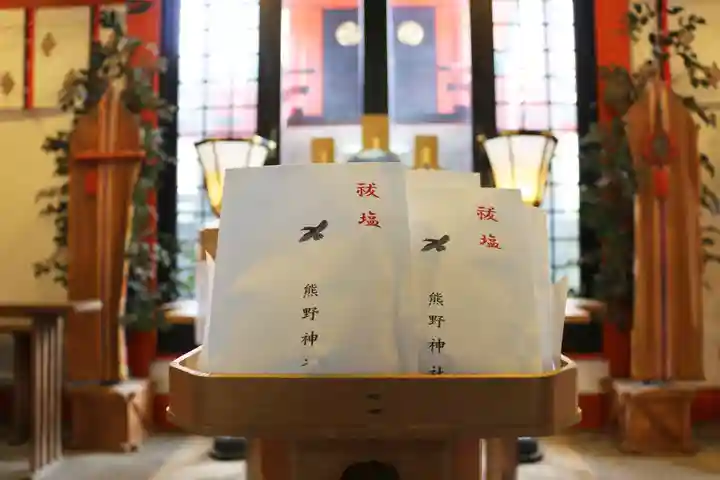 祓塩
熊野神
祓塩
熊野神社